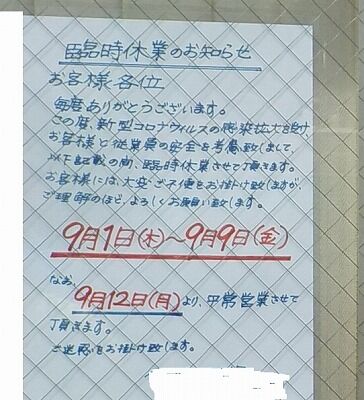 臨時休業のお知らせ
お客様各位
毎度ありがとうございます。
この度、新型コロナウィルスの感染拡大を受け
お客様と従業員の安全を考慮致しまして、
以下記載の間、臨時休業させて頂きます。
お客様には、大変ご不便をお掛け致しますが、
ご理解のほど、よろしくお願い致します。
9月1日(木)～9月9日(金)
なお、
9月12日(月)より、平常営業させて
頂きます。
ご迷惑をお掛け致します。